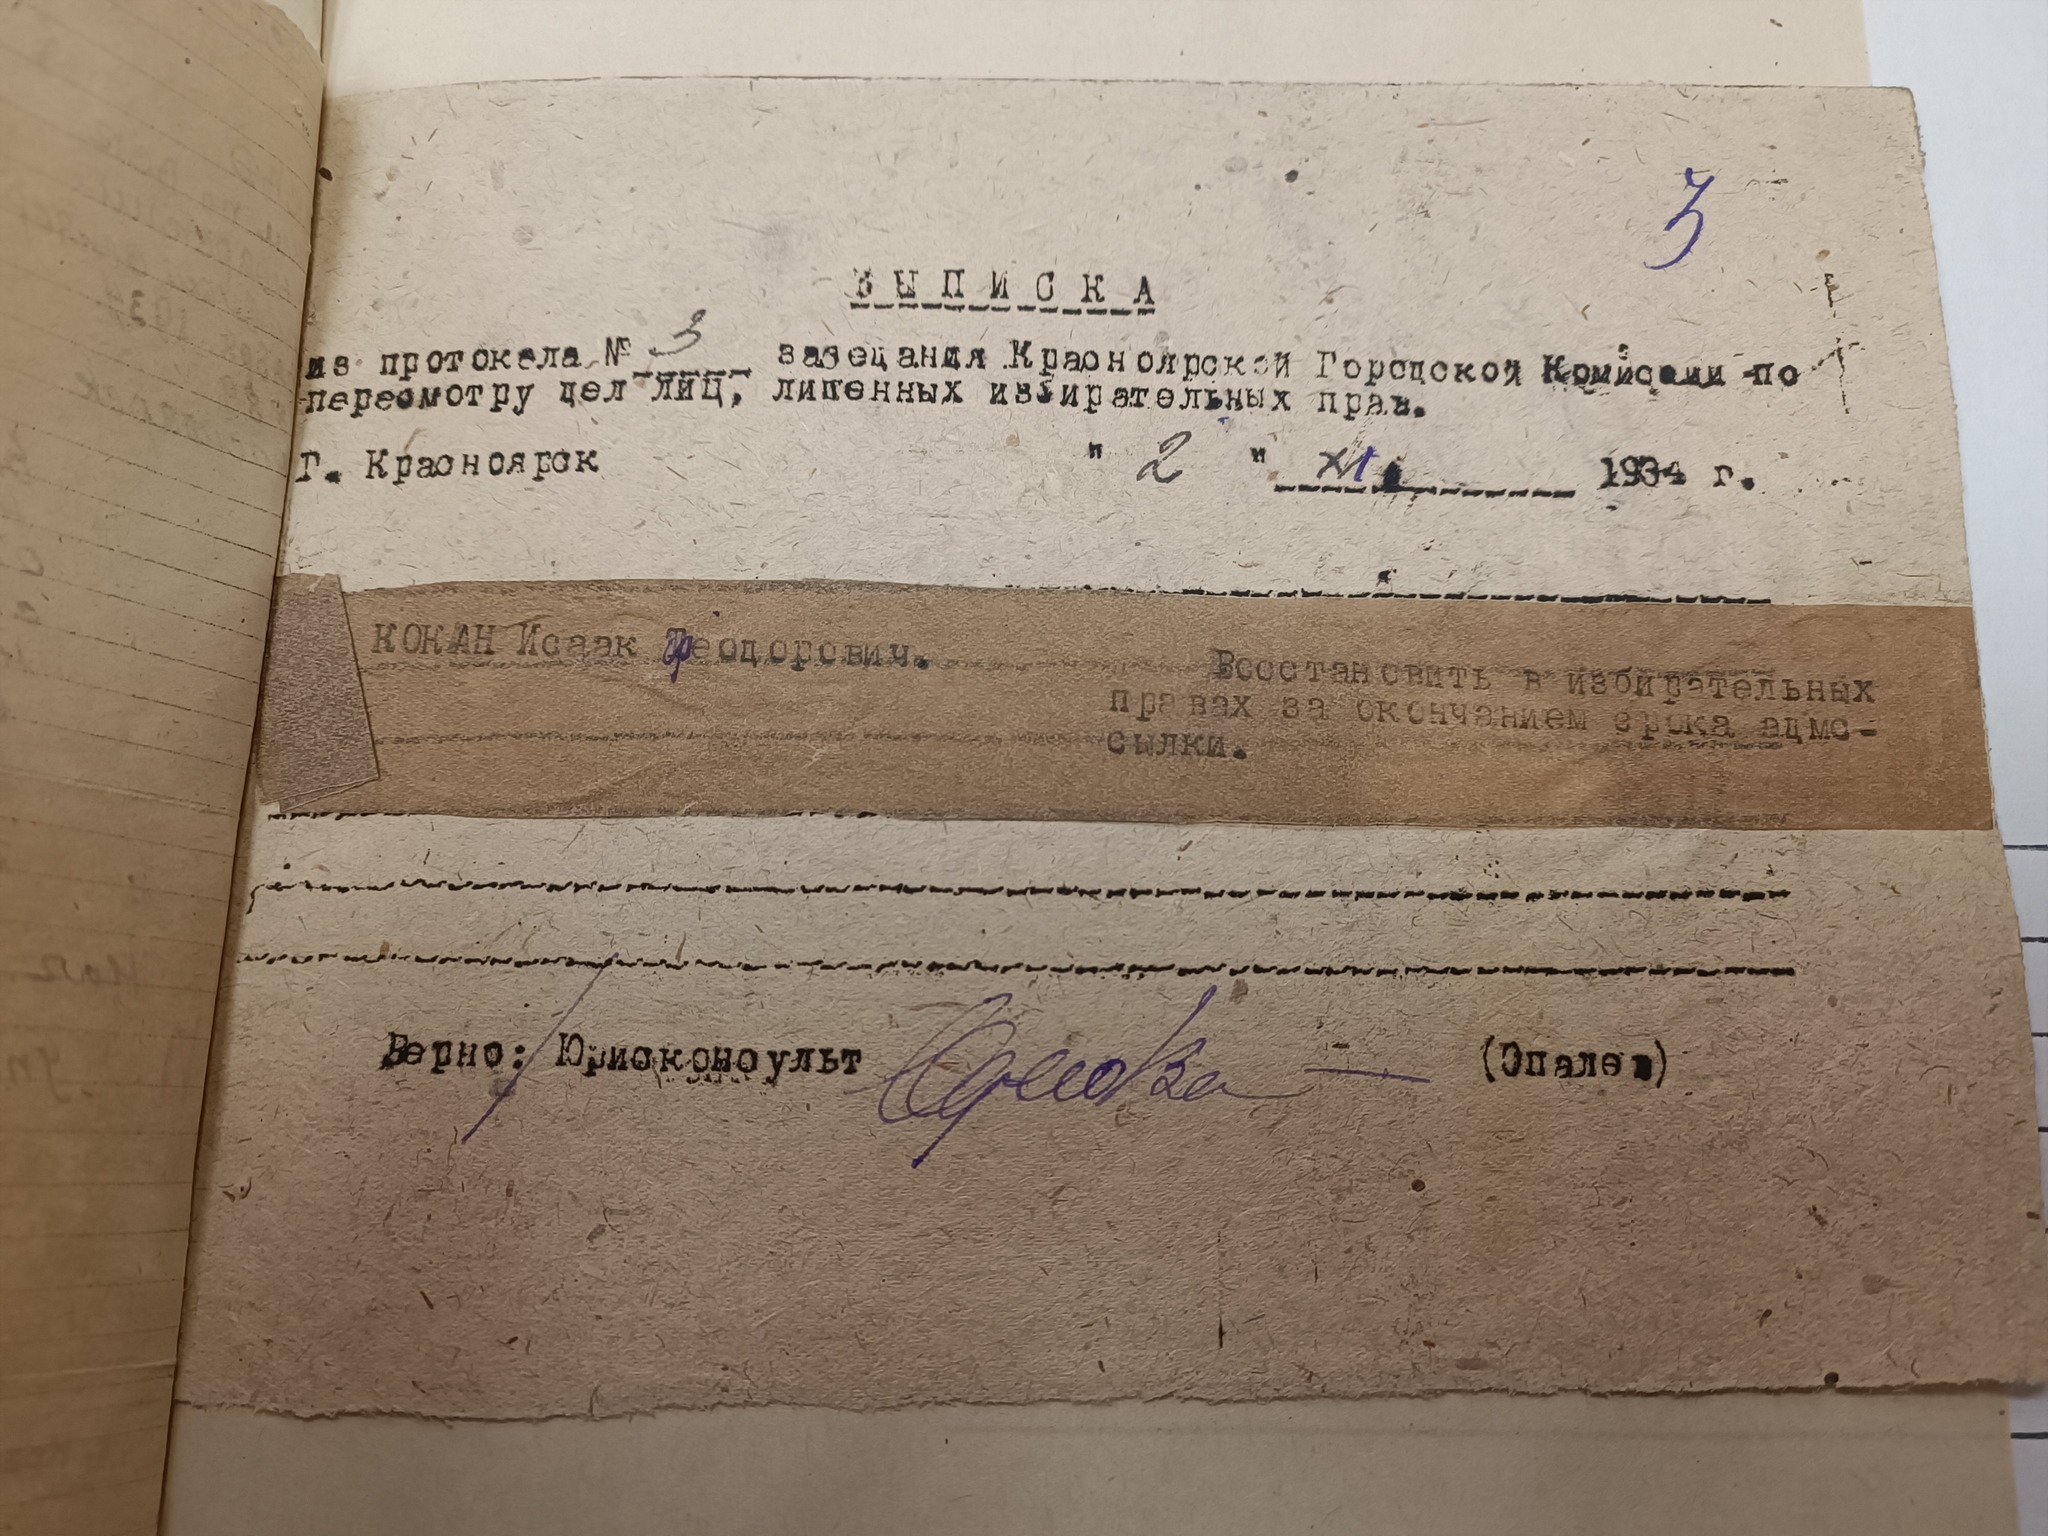 3
ВЫПИСКА
из протокола № 3 заседания Красноярской Городской Комиссии по
пересмотру дел лиц, лишенных избирательных прав.
Г. Красноярск " 2 " XI 1934 г.
КОКАН Исаак Феодорович.
Восстановить в избирательных
правах за окончанием срока адмс-
сылки.
Верно: Юрисконсульт (Опалев)